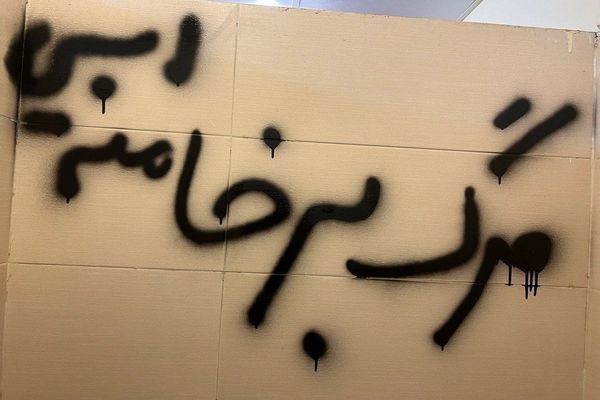 مرگ بر خامنه ای